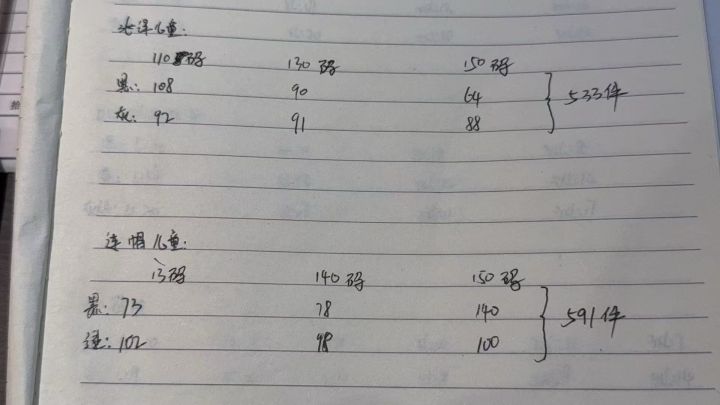 儿童:
110码 130码 150码
黑: 108 90 64
灰: 92 91 88
533件
连帽儿童:
13码 140码 150码
黑: 73 78 140
: 102 98 100
591件